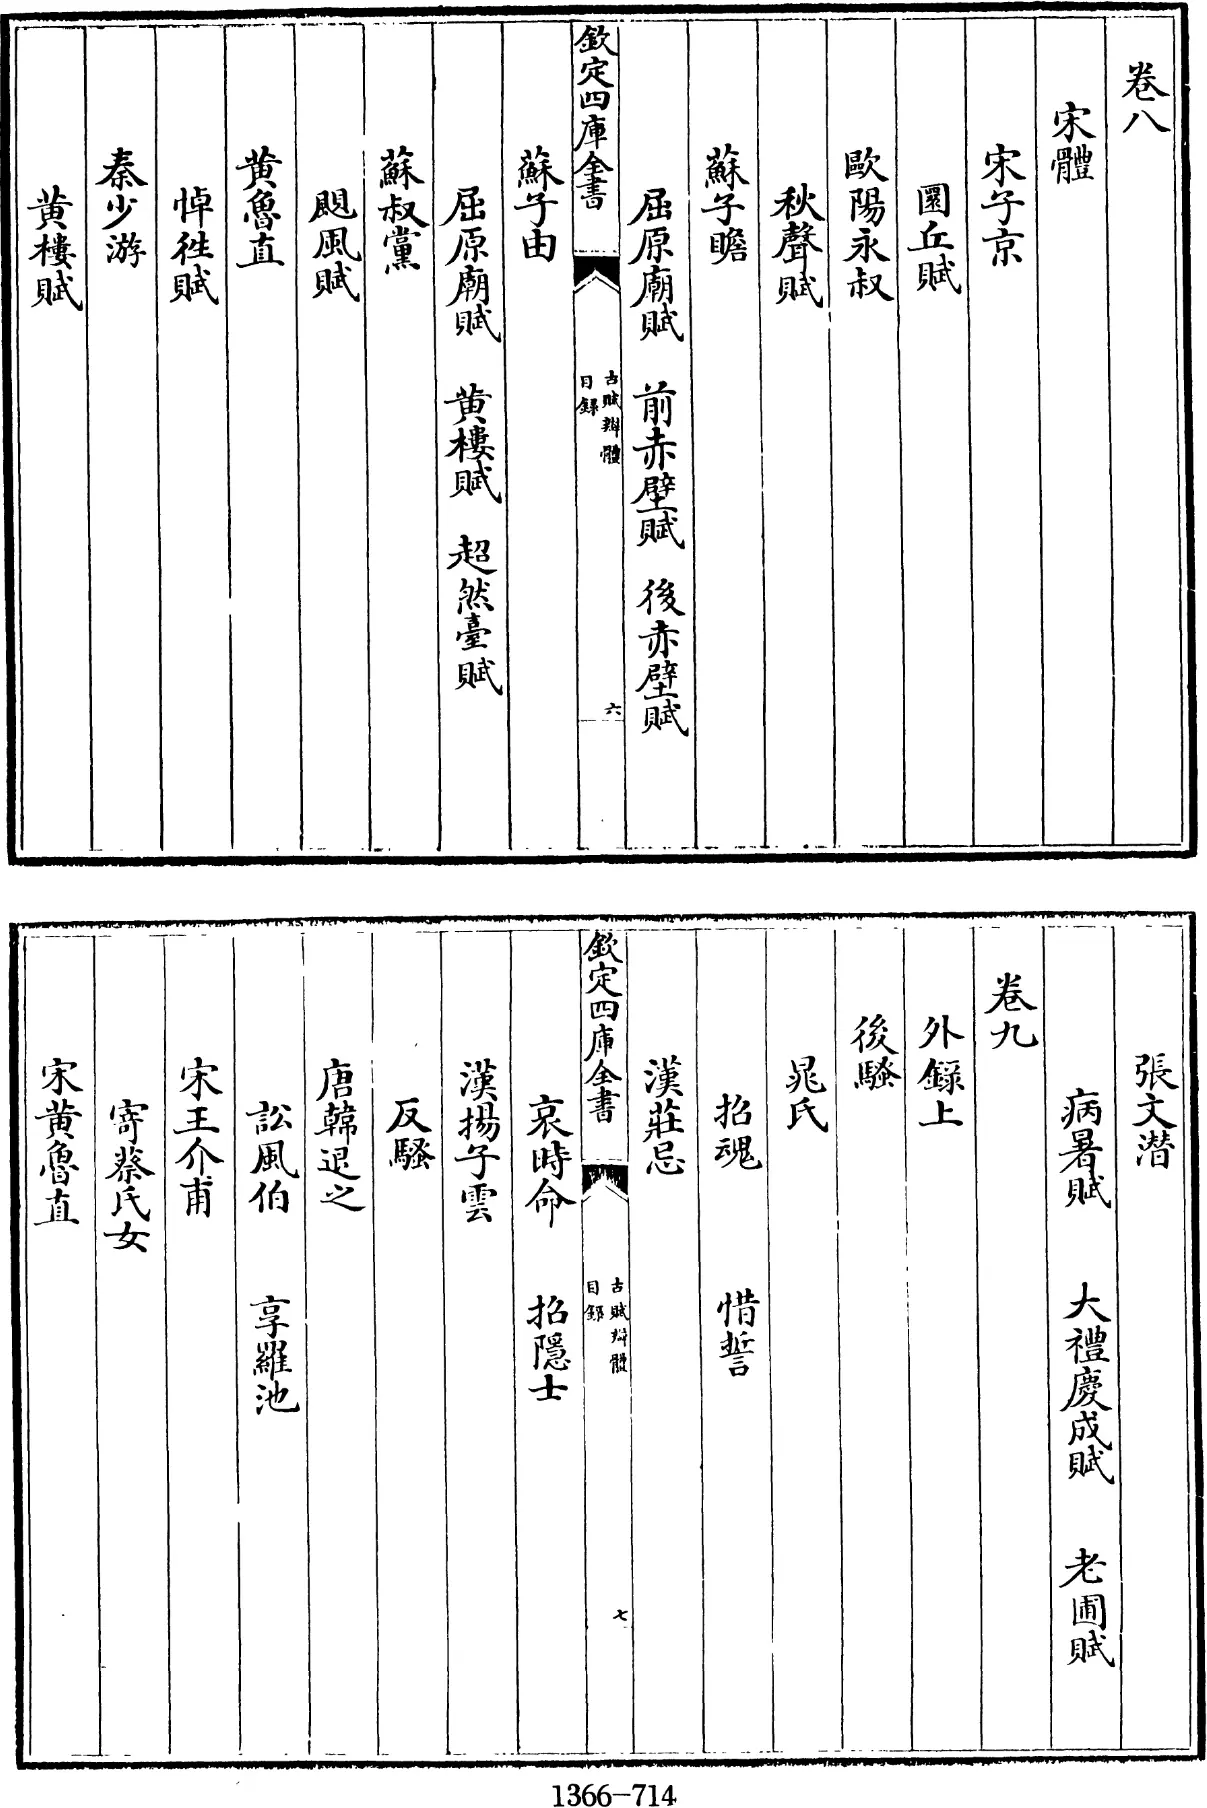 卷八
宋體
宋子京
圜丘賦
歐陽永叔
秋聲賦
蘇子瞻
屈原廟賦 前赤壁賦 後赤壁賦
欽定四庫全書
古賦辯體
目録
六
蘇子由
屈原廟賦 黄樓賦 超然臺賦
蘇叔黨
颶風賦
黄魯直
悼徃賦
秦少游
黄樓賦
張文潜
病暑賦 大禮慶成賦 老圃賦
卷九
外録上
後騷
晁氏
招魂 惜誓
漢莊忌
欽定四庫全書
古賦辯體
目録
七
哀時命 招隠士
漢揚子雲
反騷
唐韓退之
訟風伯 享羅池
宋王介甫
寄蔡氏女
宋黄魯直
1366-714